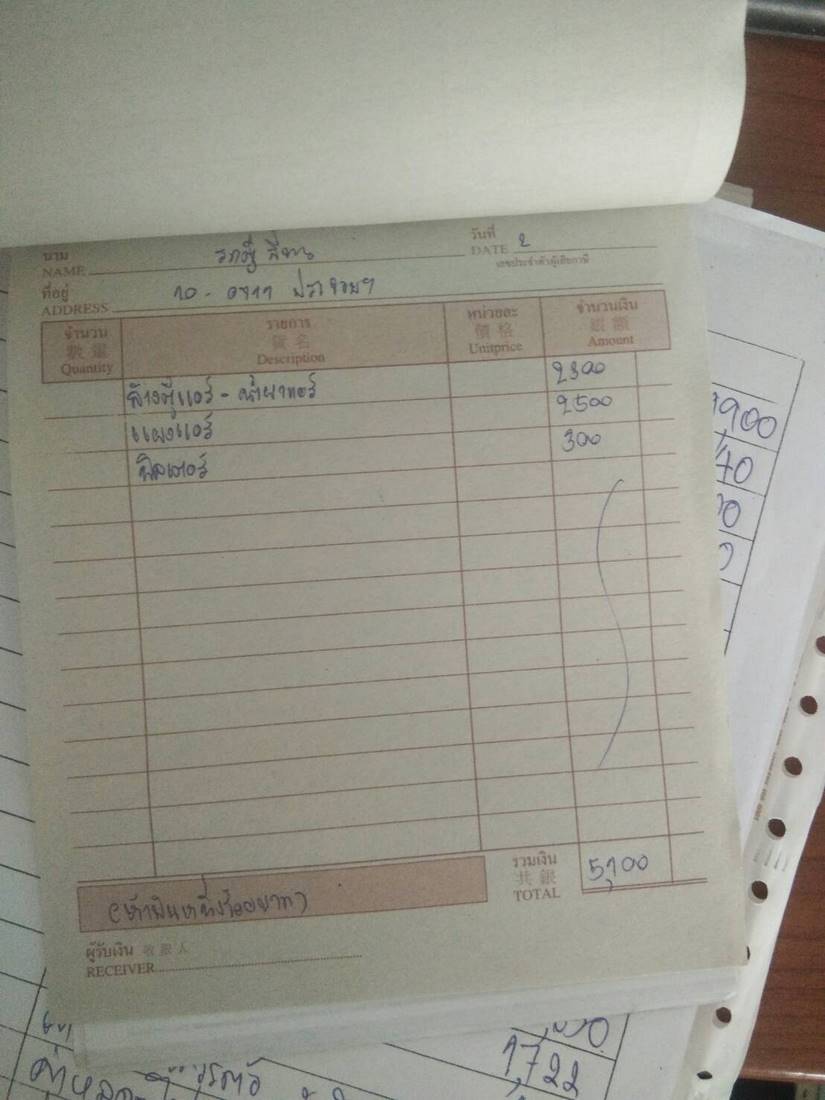 นาม
NAME
รถตู้ สีเทา
วันที่
DATE 2
เลขประจำตัวผู้เสียภาษี
ที่อยู่
ADDRESS
10 -
จำนวน
數量
Quantity
รายการ
貨名
Description
หน่วยละ
價格
Unitprice
จำนวนเงิน
銀額
Amount
ล้างตู้แอร์ - น้ำยาแอร์ 2300
แผงแอร์ 2500
ฟิลเตอร์ 300
รวมเงิน
共銀
TOTAL
5,100
(ห้าพันหนึ่งร้อยบาท)
ผู้รับเงิน 收銀人
RECEIVER
,900
1,722